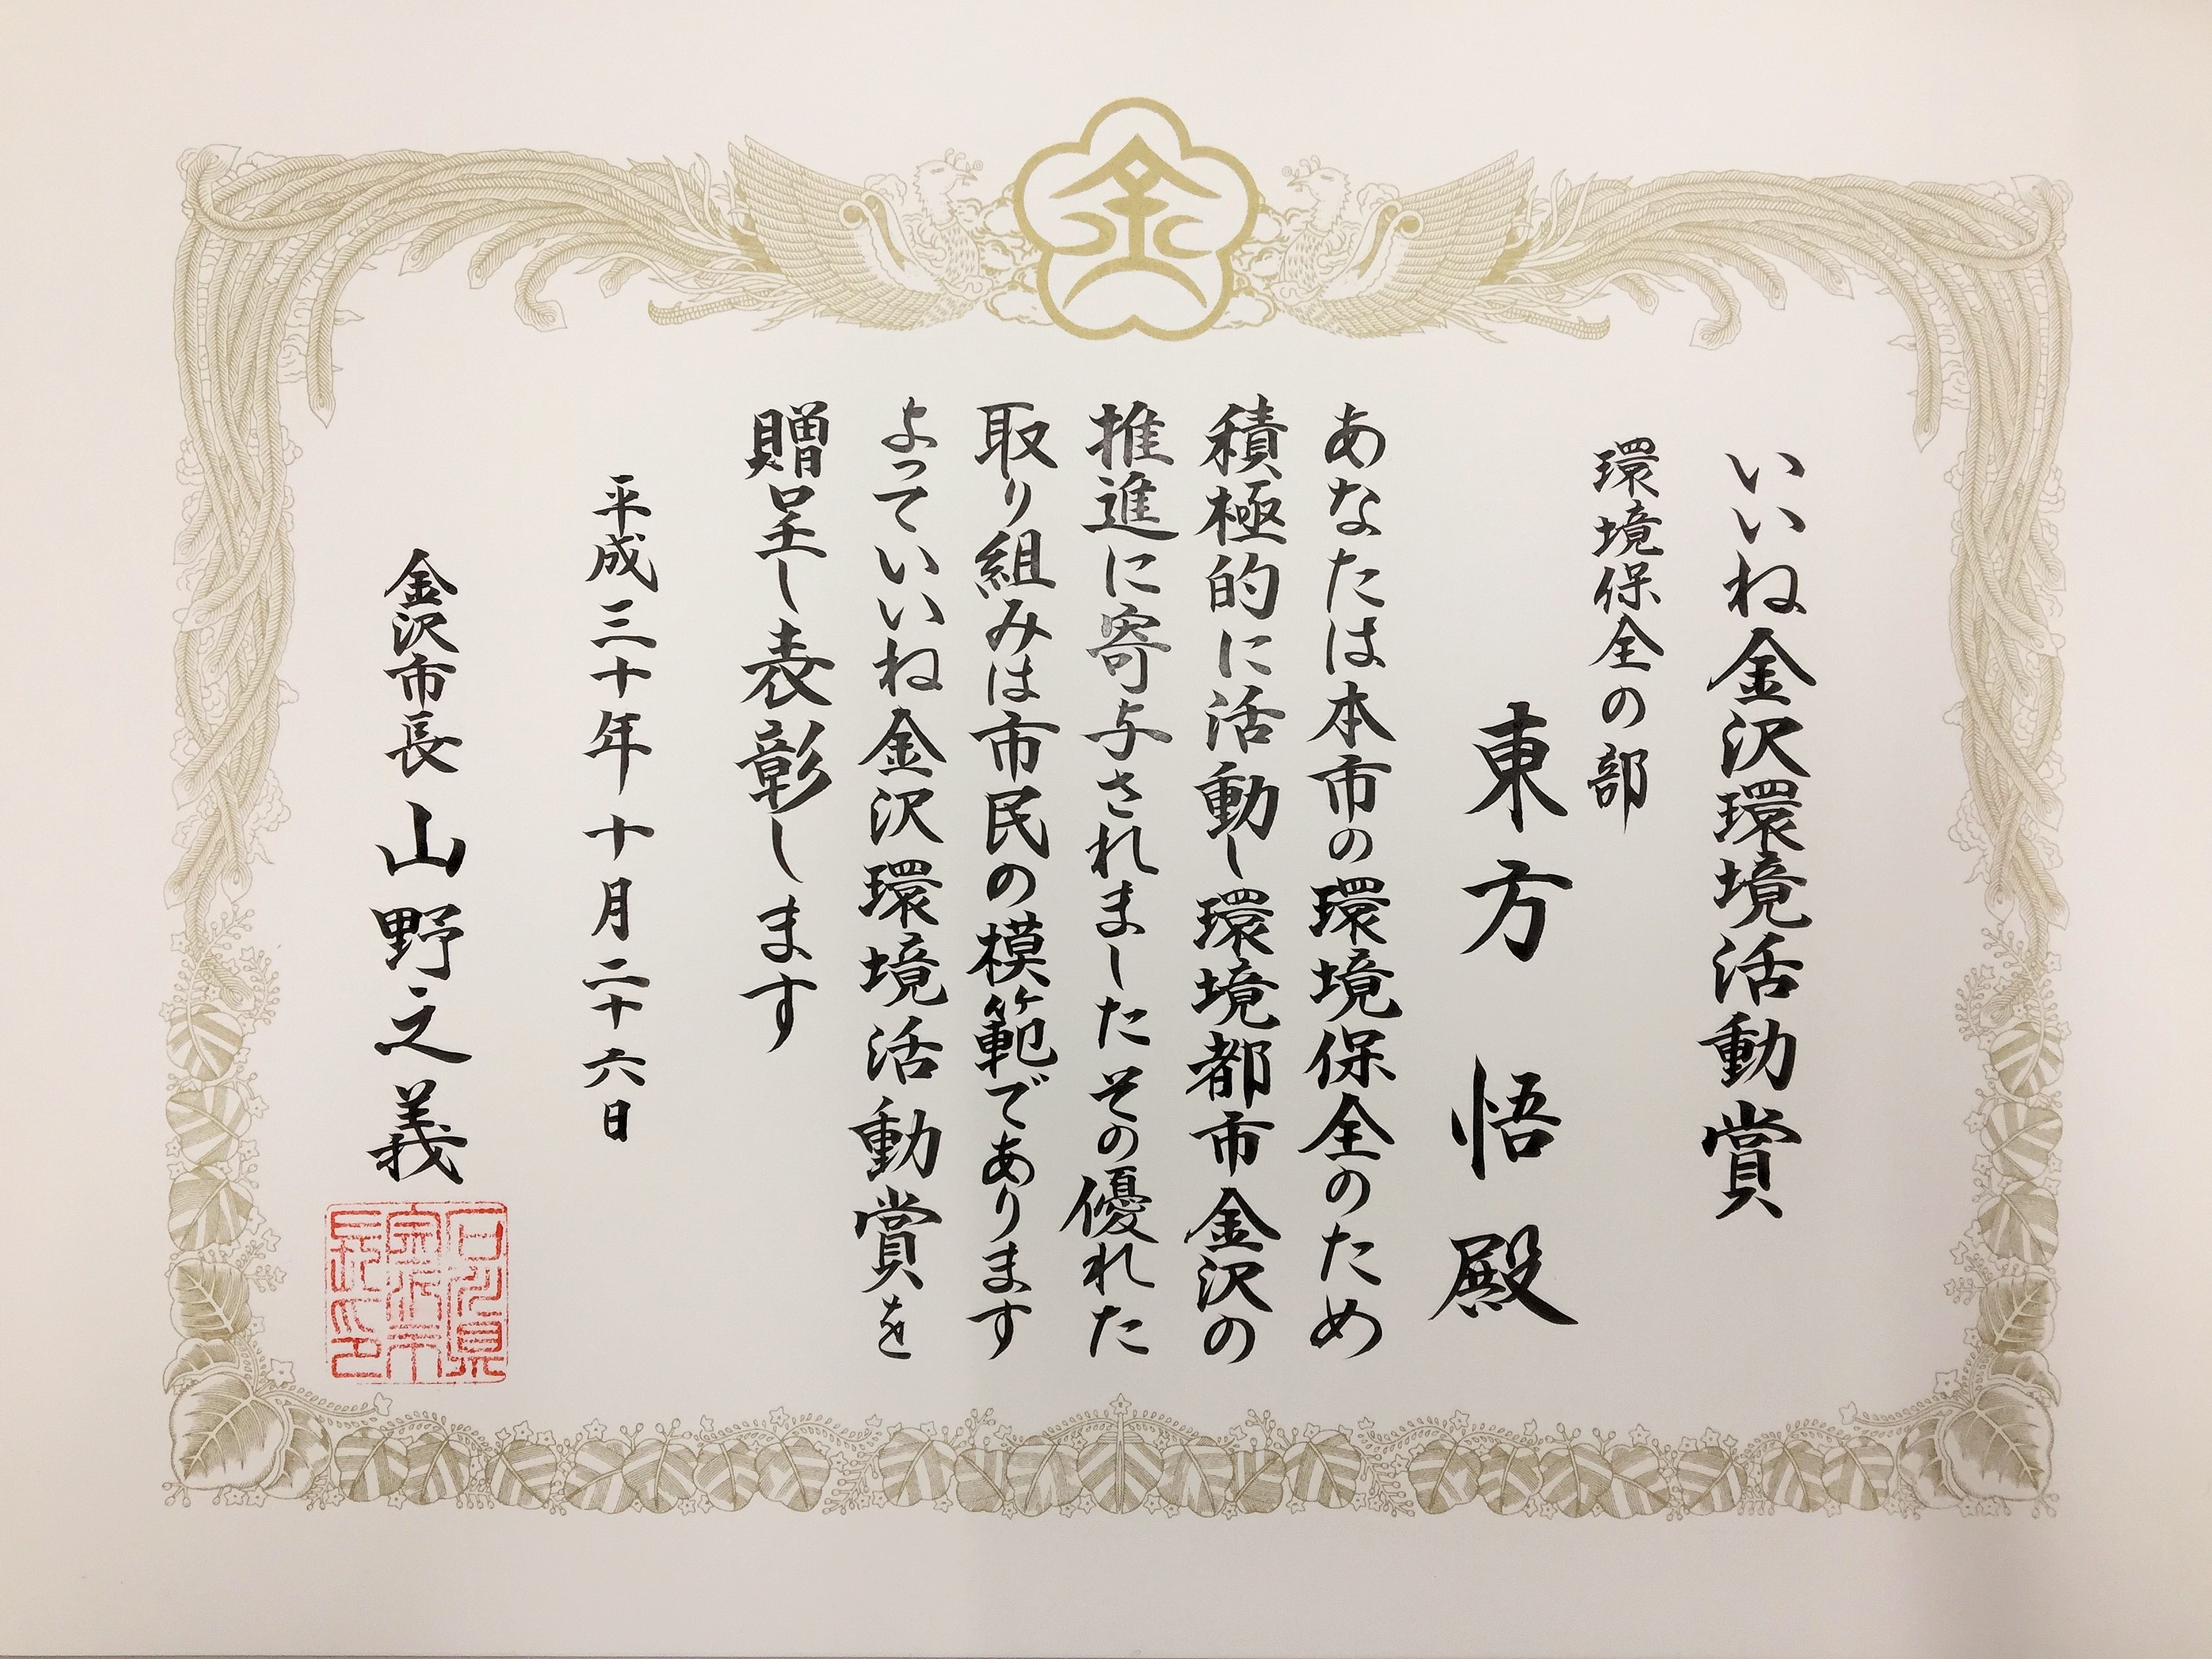 金
いいね金沢環境活動賞
環境保全の部
東方 悟 殿
あなたは本市の環境保全のため
積極的に活動し環境都市金沢の
推進に寄与されましたその優れた
取り組みは市民の模範であります
よっていいね金沢環境活動賞を
贈呈し表彰します
平成三十年十月二十六日
金沢市長 山野之義
石川県
金沢市
長之印